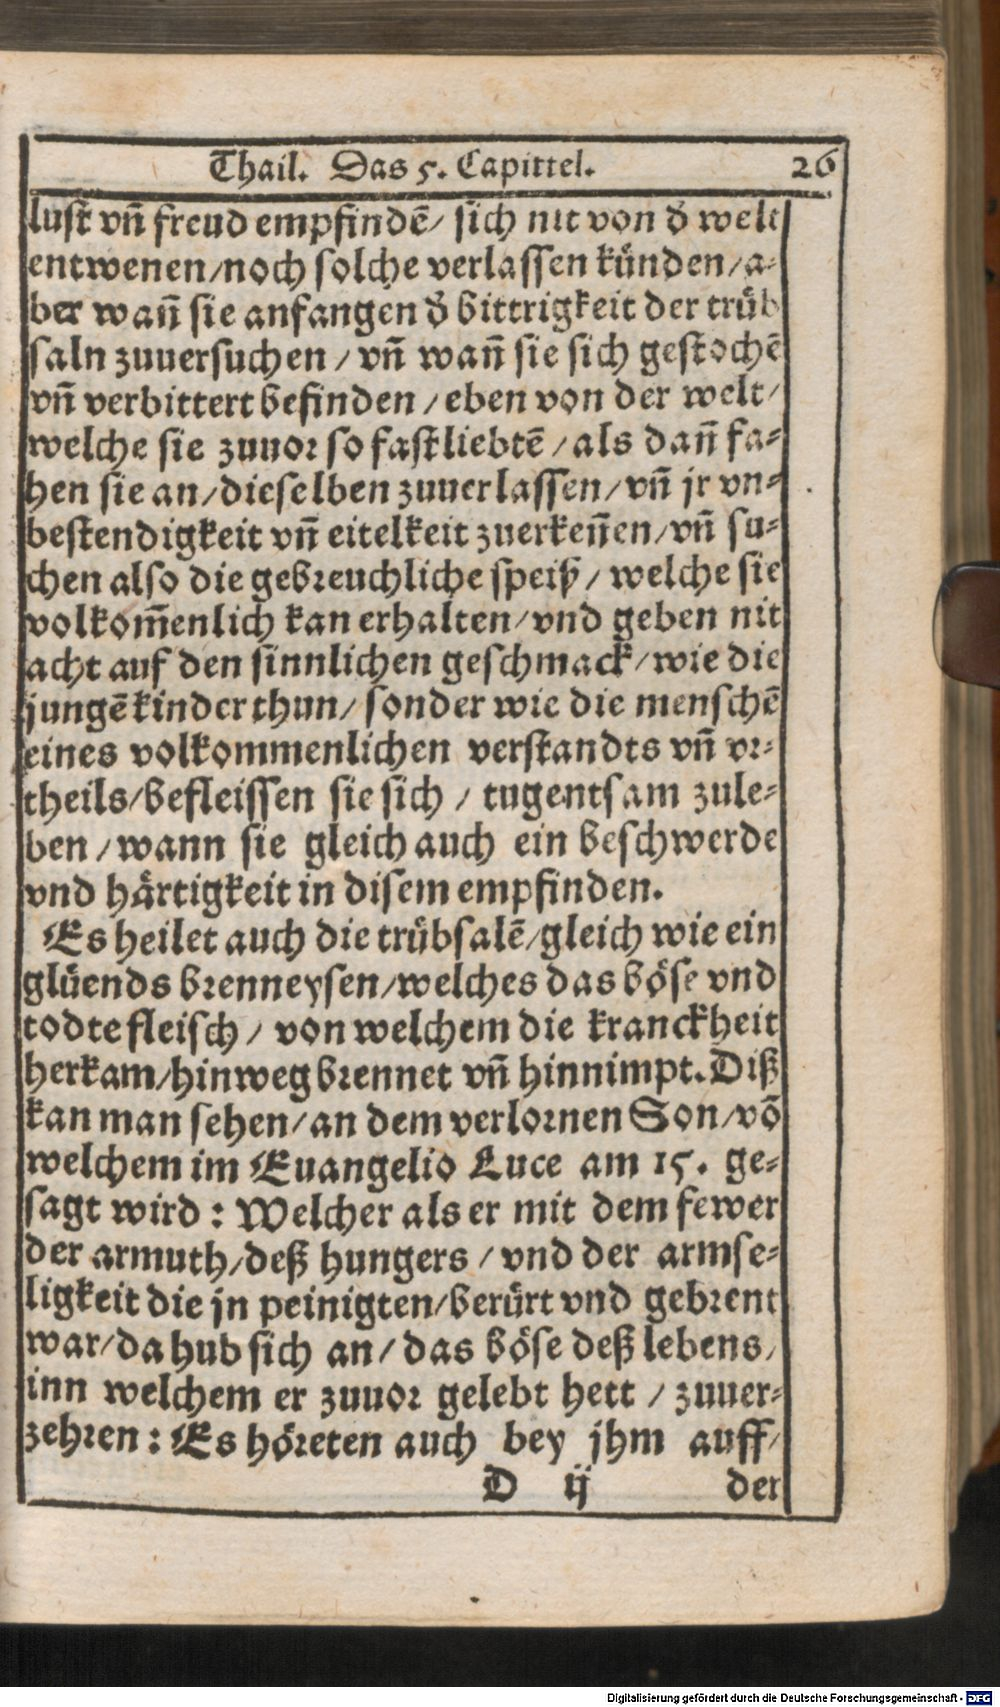 Thail. Das 5. Capittel. 26
lust vñ freud empfindē/ sich nit von ď welt
entwenen/noch solche verlassen künden/a-
ber wañ sie anfangen ď bittrigkeit der trüb
saln zuuersuchen / vñ wañ sie sich gestochē
vñ verbittert befinden /eben von der welt/
welche sie zuuor so fast liebtē /als dañ fa-
hen sie an/dieselben zuuerlassen/vñ jr vn-
bestendigkeit vñ eitelkeit zuerkeñen/vñ su-
chen also die gebreuchliche speiß / welche sie
volkom̃enlich kan erhalten/vnd geben nit
acht auf den sinnlichen geschmack/wie die
jungē kinder thun/ sonder wie die menschē
eines volkommenlichen verstandts vñ vr-
theils/befleissen sie sich / tugentsam zule-
ben /wann sie gleich auch ein beschwerde
vnd härtigkeit in disem empfinden.
Es heilet auch die trübsalē/gleich wie ein
glüends brenneysen/welches das böse vnd
todte fleisch/ von welchem die kranckheit
herkam/hinweg brennet vñ hinnimpt. Diß
kan man sehen/an dem verlornen Son/vō
welchem im Euangelio Luce am 15. ge-
sagt wird : Welcher als er mit dem fewer
der armuth/deß hungers / vnd der armse-
ligkeit die jn peinigten/berürt vnd gebrent
war/da hub sich an/ das böse deß lebens/
inn welchem er zuuor gelebt hett / zuuer-
zehren : Es höreten auch bey jhm auff/
D ij der
Digitalisierung gefördert durch die Deutsche Forschungsgemeinschaft - DFG